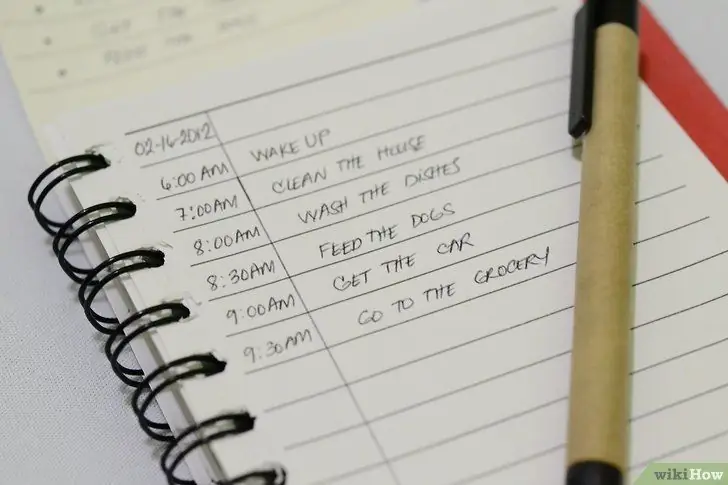 02-16-2012
6:00AM WAKE UP
7:00AM CLEAN THE HOUSE
8:00AM WASH THE DISHES
8:30AM FEED THE DOGS
9:00AM GET THE CAR
9:30AM GO TO THE GROCERY
wikiHow